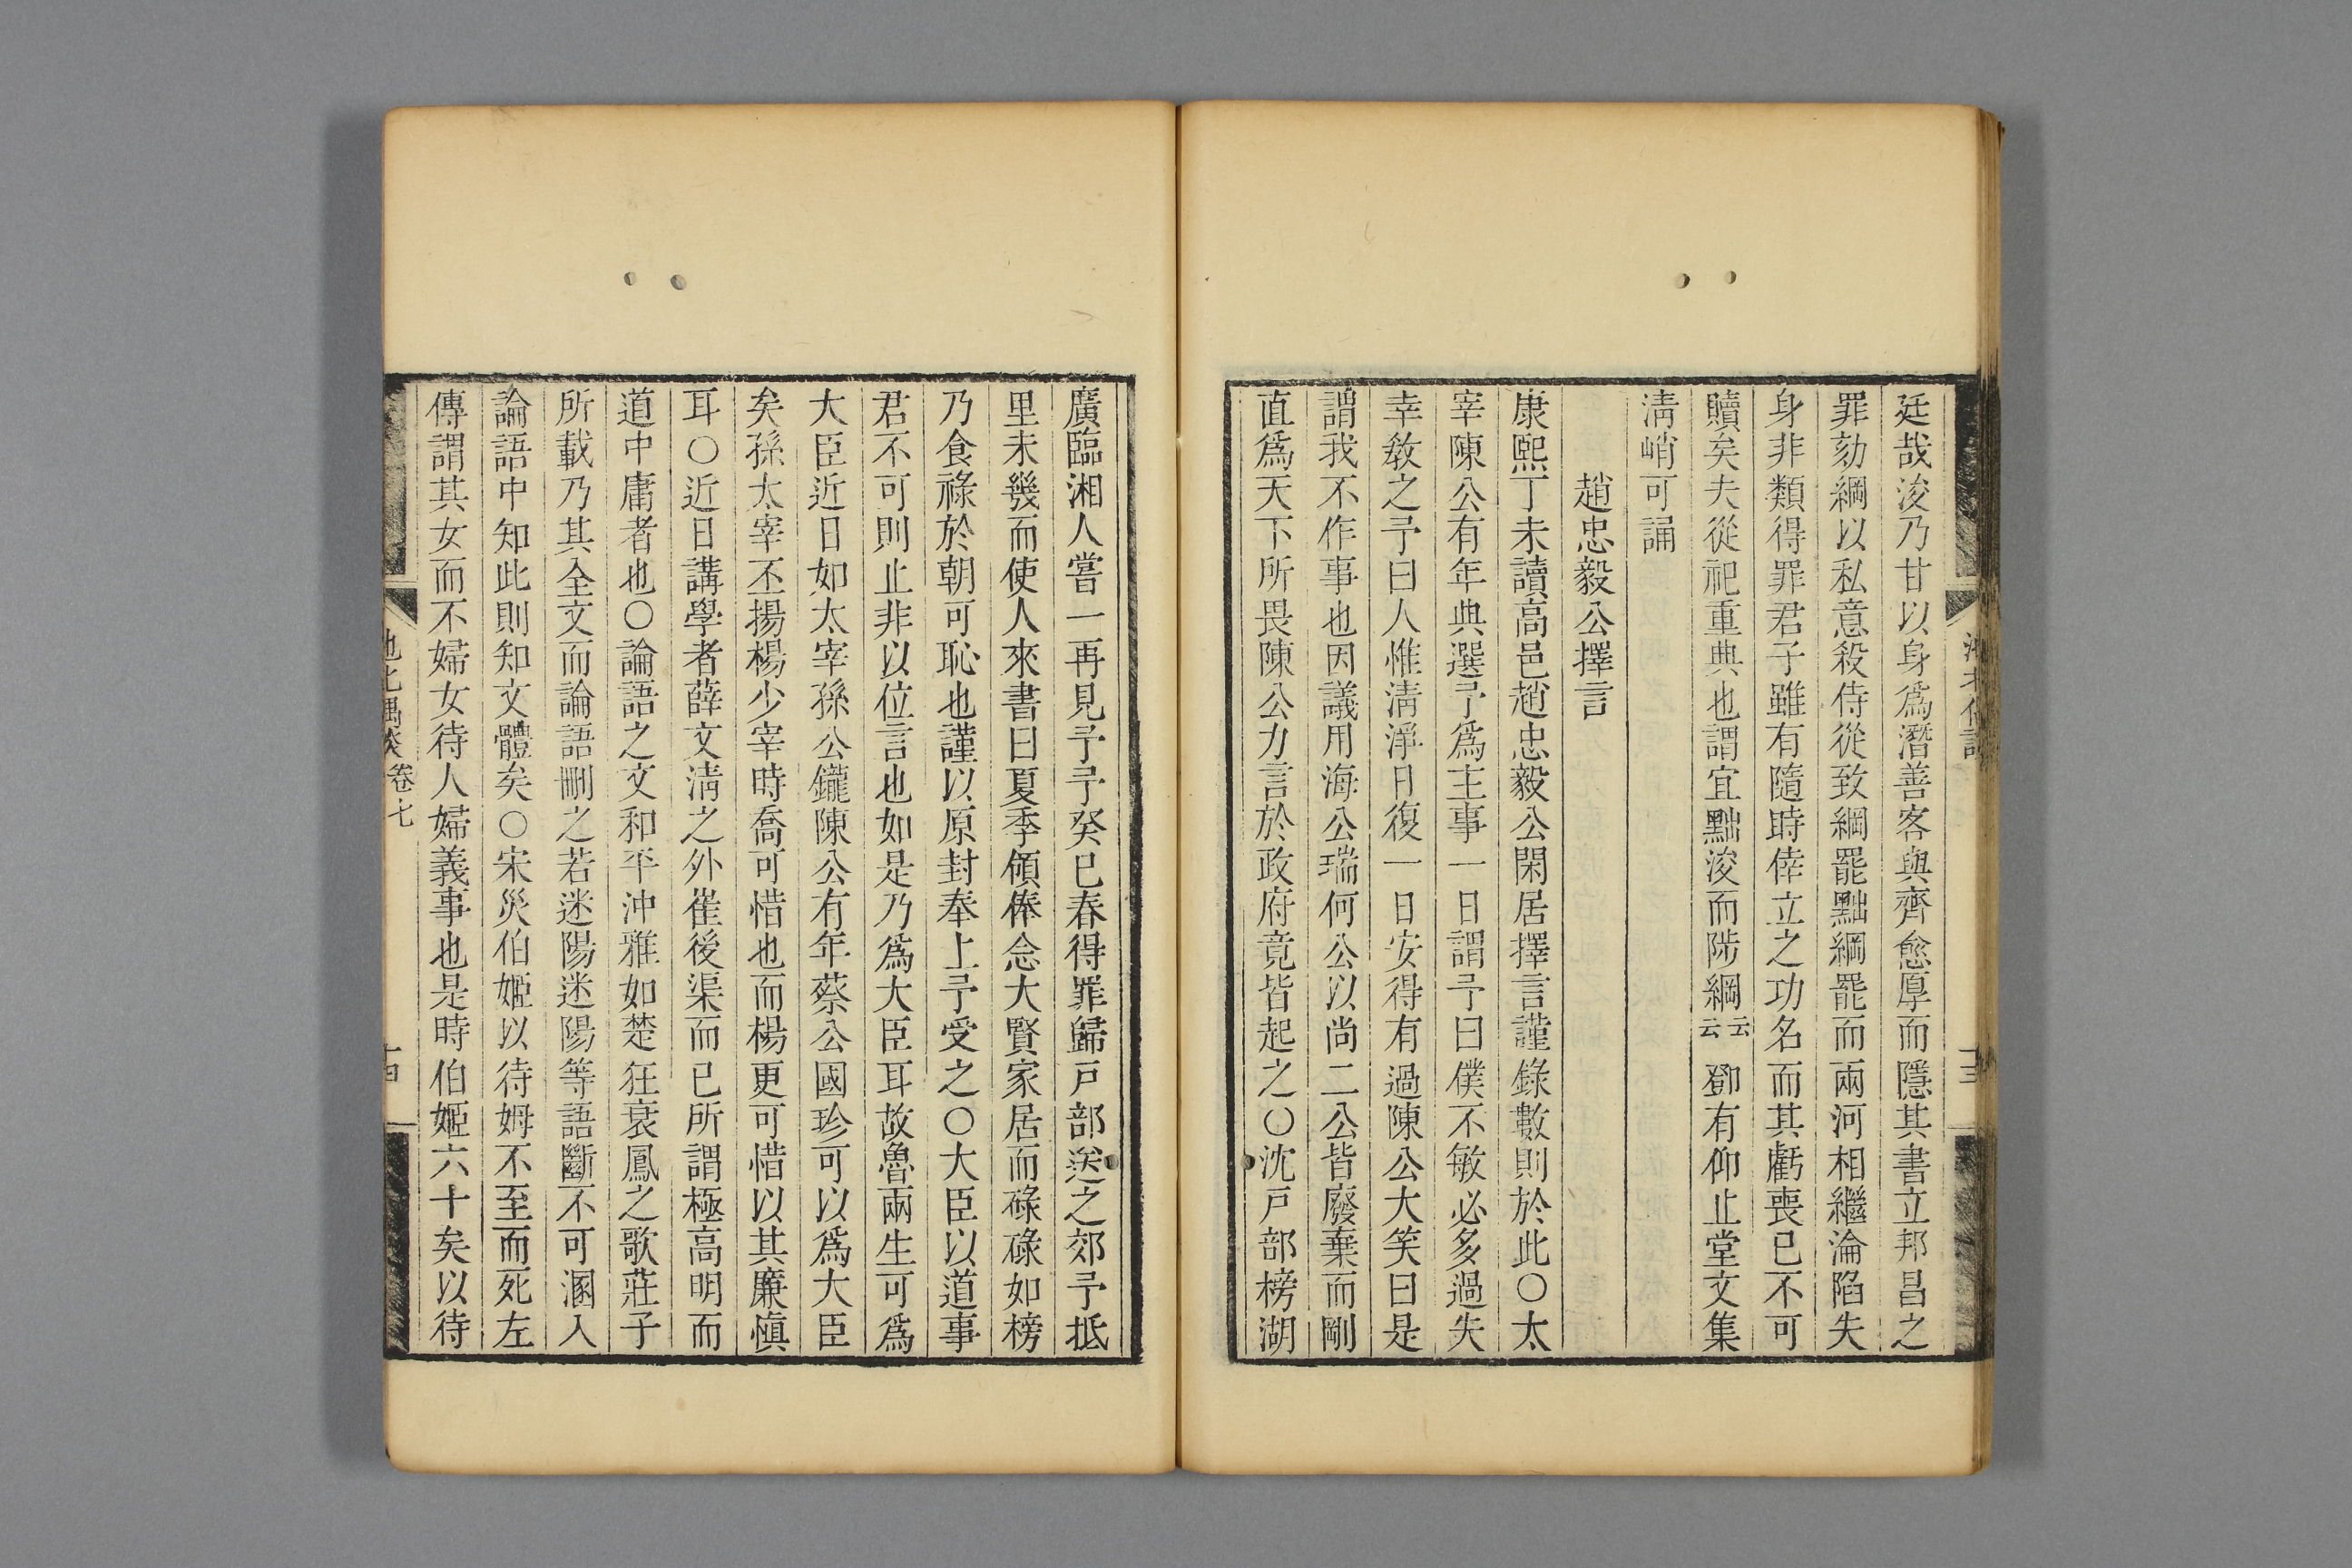 廷哉浚乃甘以身爲潛善客與齊愈厚而隱其書立邦昌之
罪劾綱以私意殺侍從致綱罷黜綱罷而兩河相繼淪陷失
身非類得罪君子雖有隨時倖立之功名而其虧喪已不可
贖矣夫從祀重典也謂宜黜浚而陟綱云云鄧有仰止堂文集
淸峭可誦
趙忠毅公擇言
康熙丁未讀高邑趙忠毅公閑居擇言謹錄數則於此〇太
宰陳公有年典選予爲主事一日謂予曰僕不敏必多過失
幸敎之予曰人惟淸淨日復一日安得有過陳公大笑曰是
謂我不作事也因議用海公瑞何公以尚二公皆廢棄而剛
直爲天下所畏陳公力言於政府竟皆起之〇沈戸部榜湖
廣臨湘人嘗一再見予予癸巳春得罪歸戸部送之郊予抵
里未幾而使人來書曰夏季領俸念大賢家居而碌碌如榜
乃食祿於朝可恥也謹以原封奉上予受之〇大臣以道事
君不可則止非以位言也如是乃爲大臣耳故魯兩生可爲
大臣近日如太宰孫公鑨陳公有年蔡公國珍可以爲大臣
矣孫太宰丕揚楊少宰時喬可惜也而楊更可惜以其廉愼
耳〇近日講學者薛文淸之外崔後渠而已所謂極高明而
道中庸者也〇論語之文和平沖雅如楚狂衰鳳之歌莊子
所載乃其全文而論語刪之若迷陽迷陽等語斷不可溷入
論語中知此則知文體矣〇宋災伯姬以待姆不至而死左
傳謂其女而不婦女待人婦義事也是時伯姬六十矣以待
池北偶談 卷七 十四